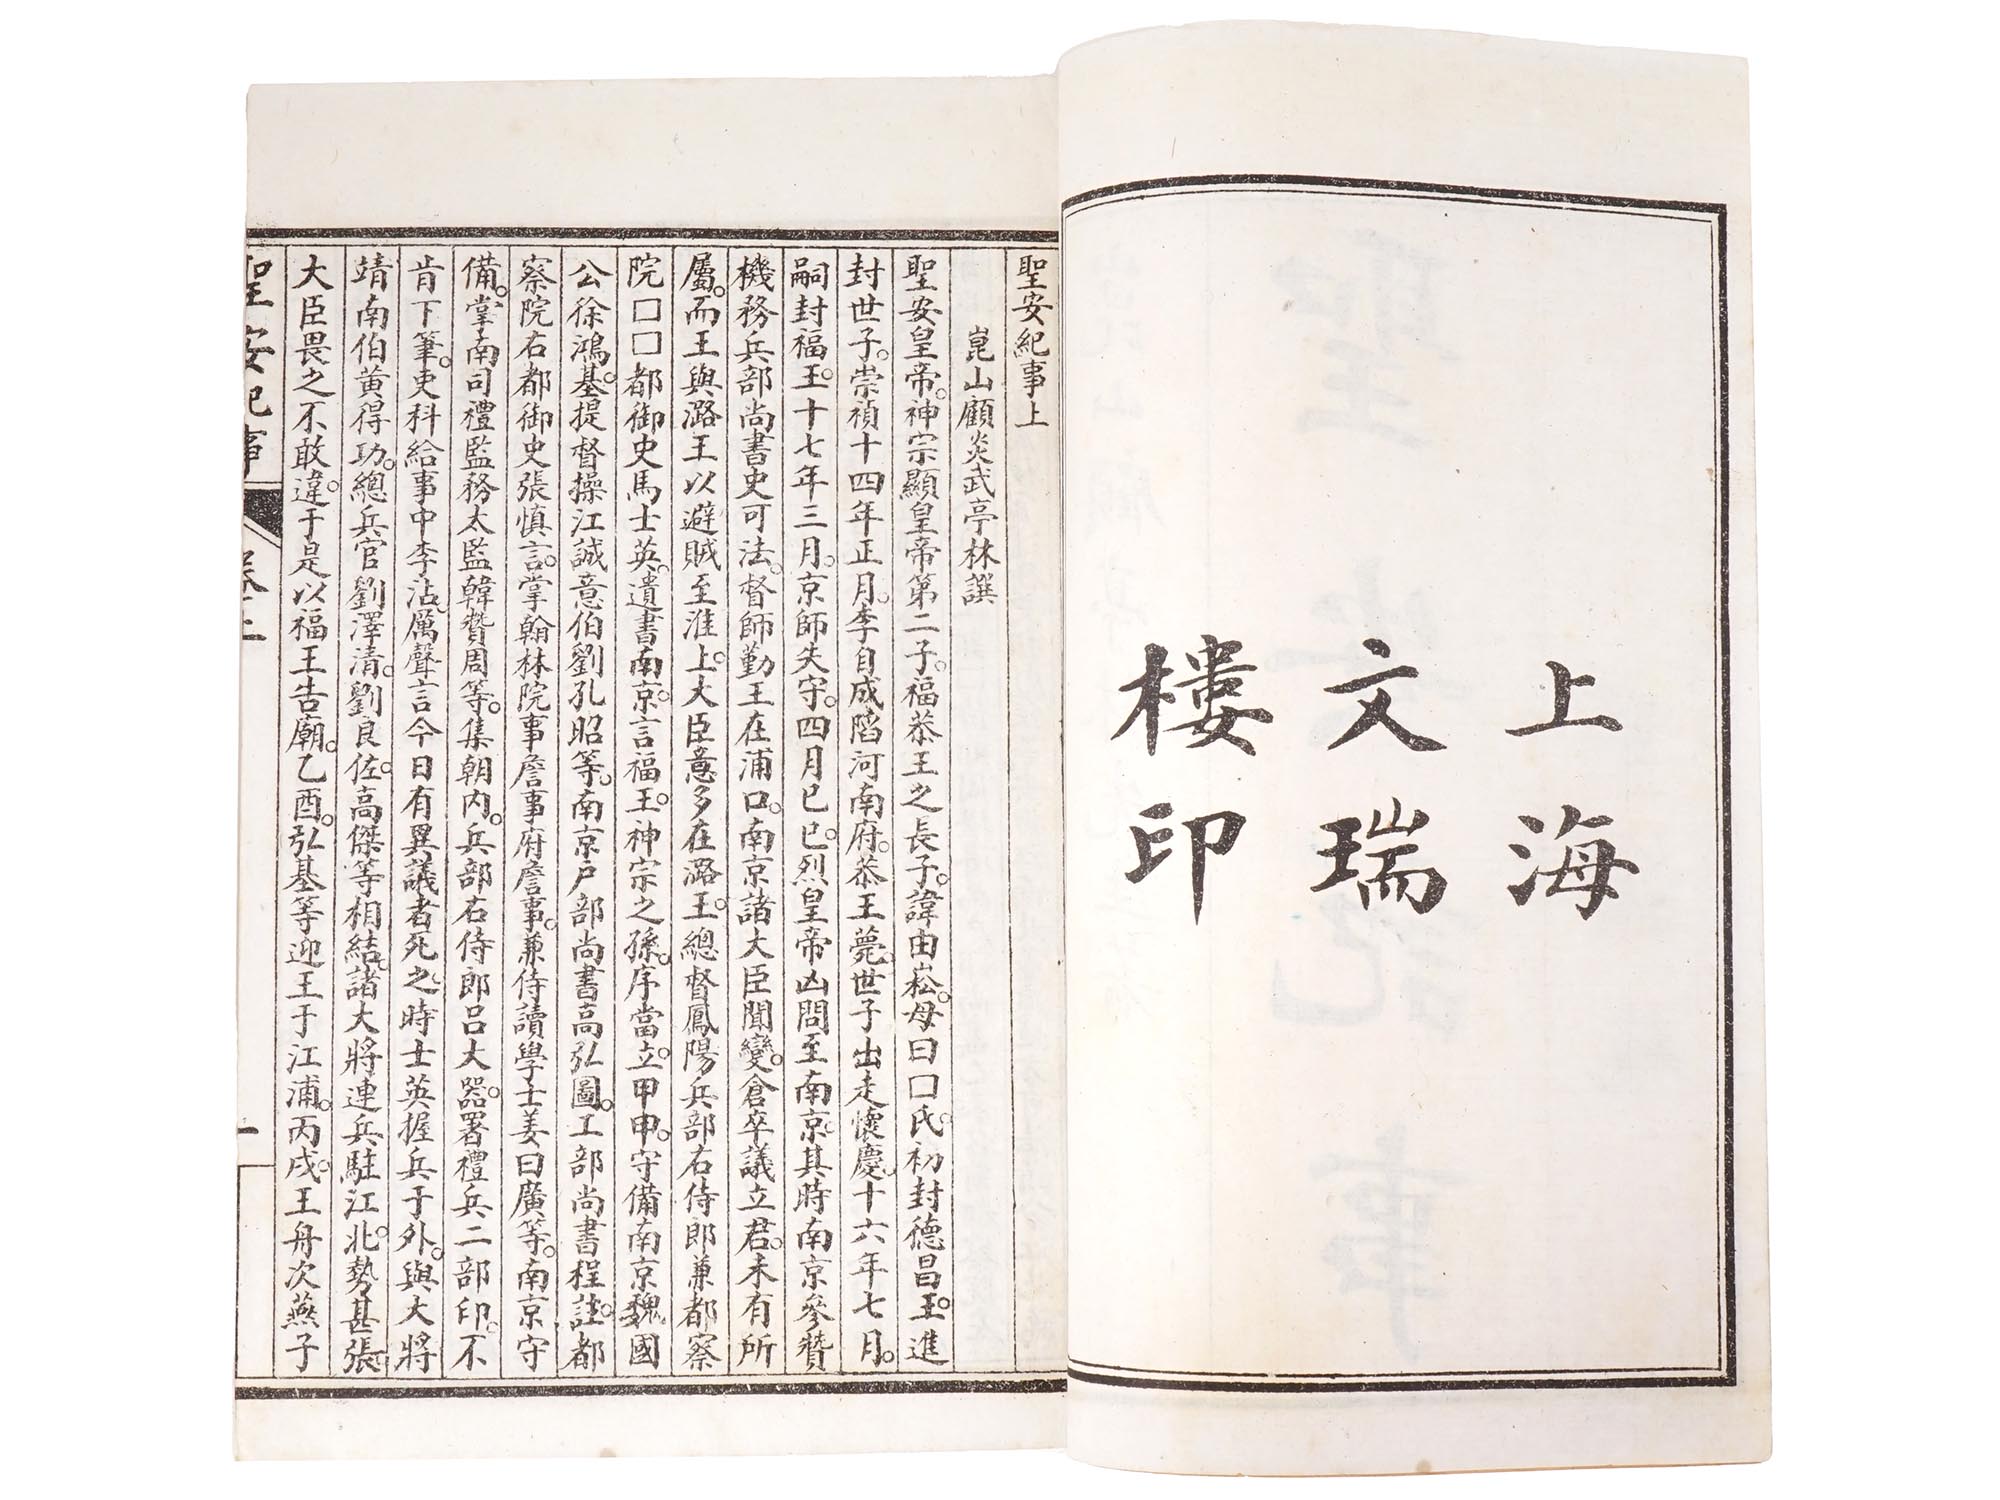 上海
文瑞
樓印
聖安紀事上
崑山顧炎武亭林譔
聖安皇帝。神宗顯皇帝第二子。福恭王之長子。諱由崧。母曰口氏。初封德昌王。進
封世子。崇禎十四年正月。李自成陷河南府。恭王薨。世子出走懷慶。十六年七月。
嗣封福王。十七年三月。京師失守。四月已巳。烈皇帝凶問至南京。其時南京參贊
機務兵部尚書史可法。督師勤王在浦口。南京諸大臣聞變。倉卒議立君。未有所
屬。而王與潞王以避賊至淮上。大臣意多在潞王。總督鳳陽兵部右侍郎兼都察
院口口都御史馬士英。遺書南京。言福王。神宗之孫。序當立。甲申。守備南京魏國
公徐鴻基。提督操江誠意伯劉孔昭等。南京戶部尚書高弘圖。工部尚書程註。都
察院右都御史張慎言。掌翰林院事詹事府詹事。兼侍讀學士姜曰廣等。南京守
備。掌南司禮監務太監韓贊周等。集朝內。兵部右侍郎呂大器。署禮兵二部印。不
肯下筆。吏科給事中李沾。厲聲言今日有異議者死之。時士英握兵于外。與大將
靖南伯黃得功。總兵官劉澤清。劉良佐。高傑等相結。諸大將連兵駐江北。勢甚張。
大臣畏之不敢違。于是以福王告廟。乙酉。弘基等迎王于江浦。丙戌。王舟次燕子
聖安紀事 卷上 一